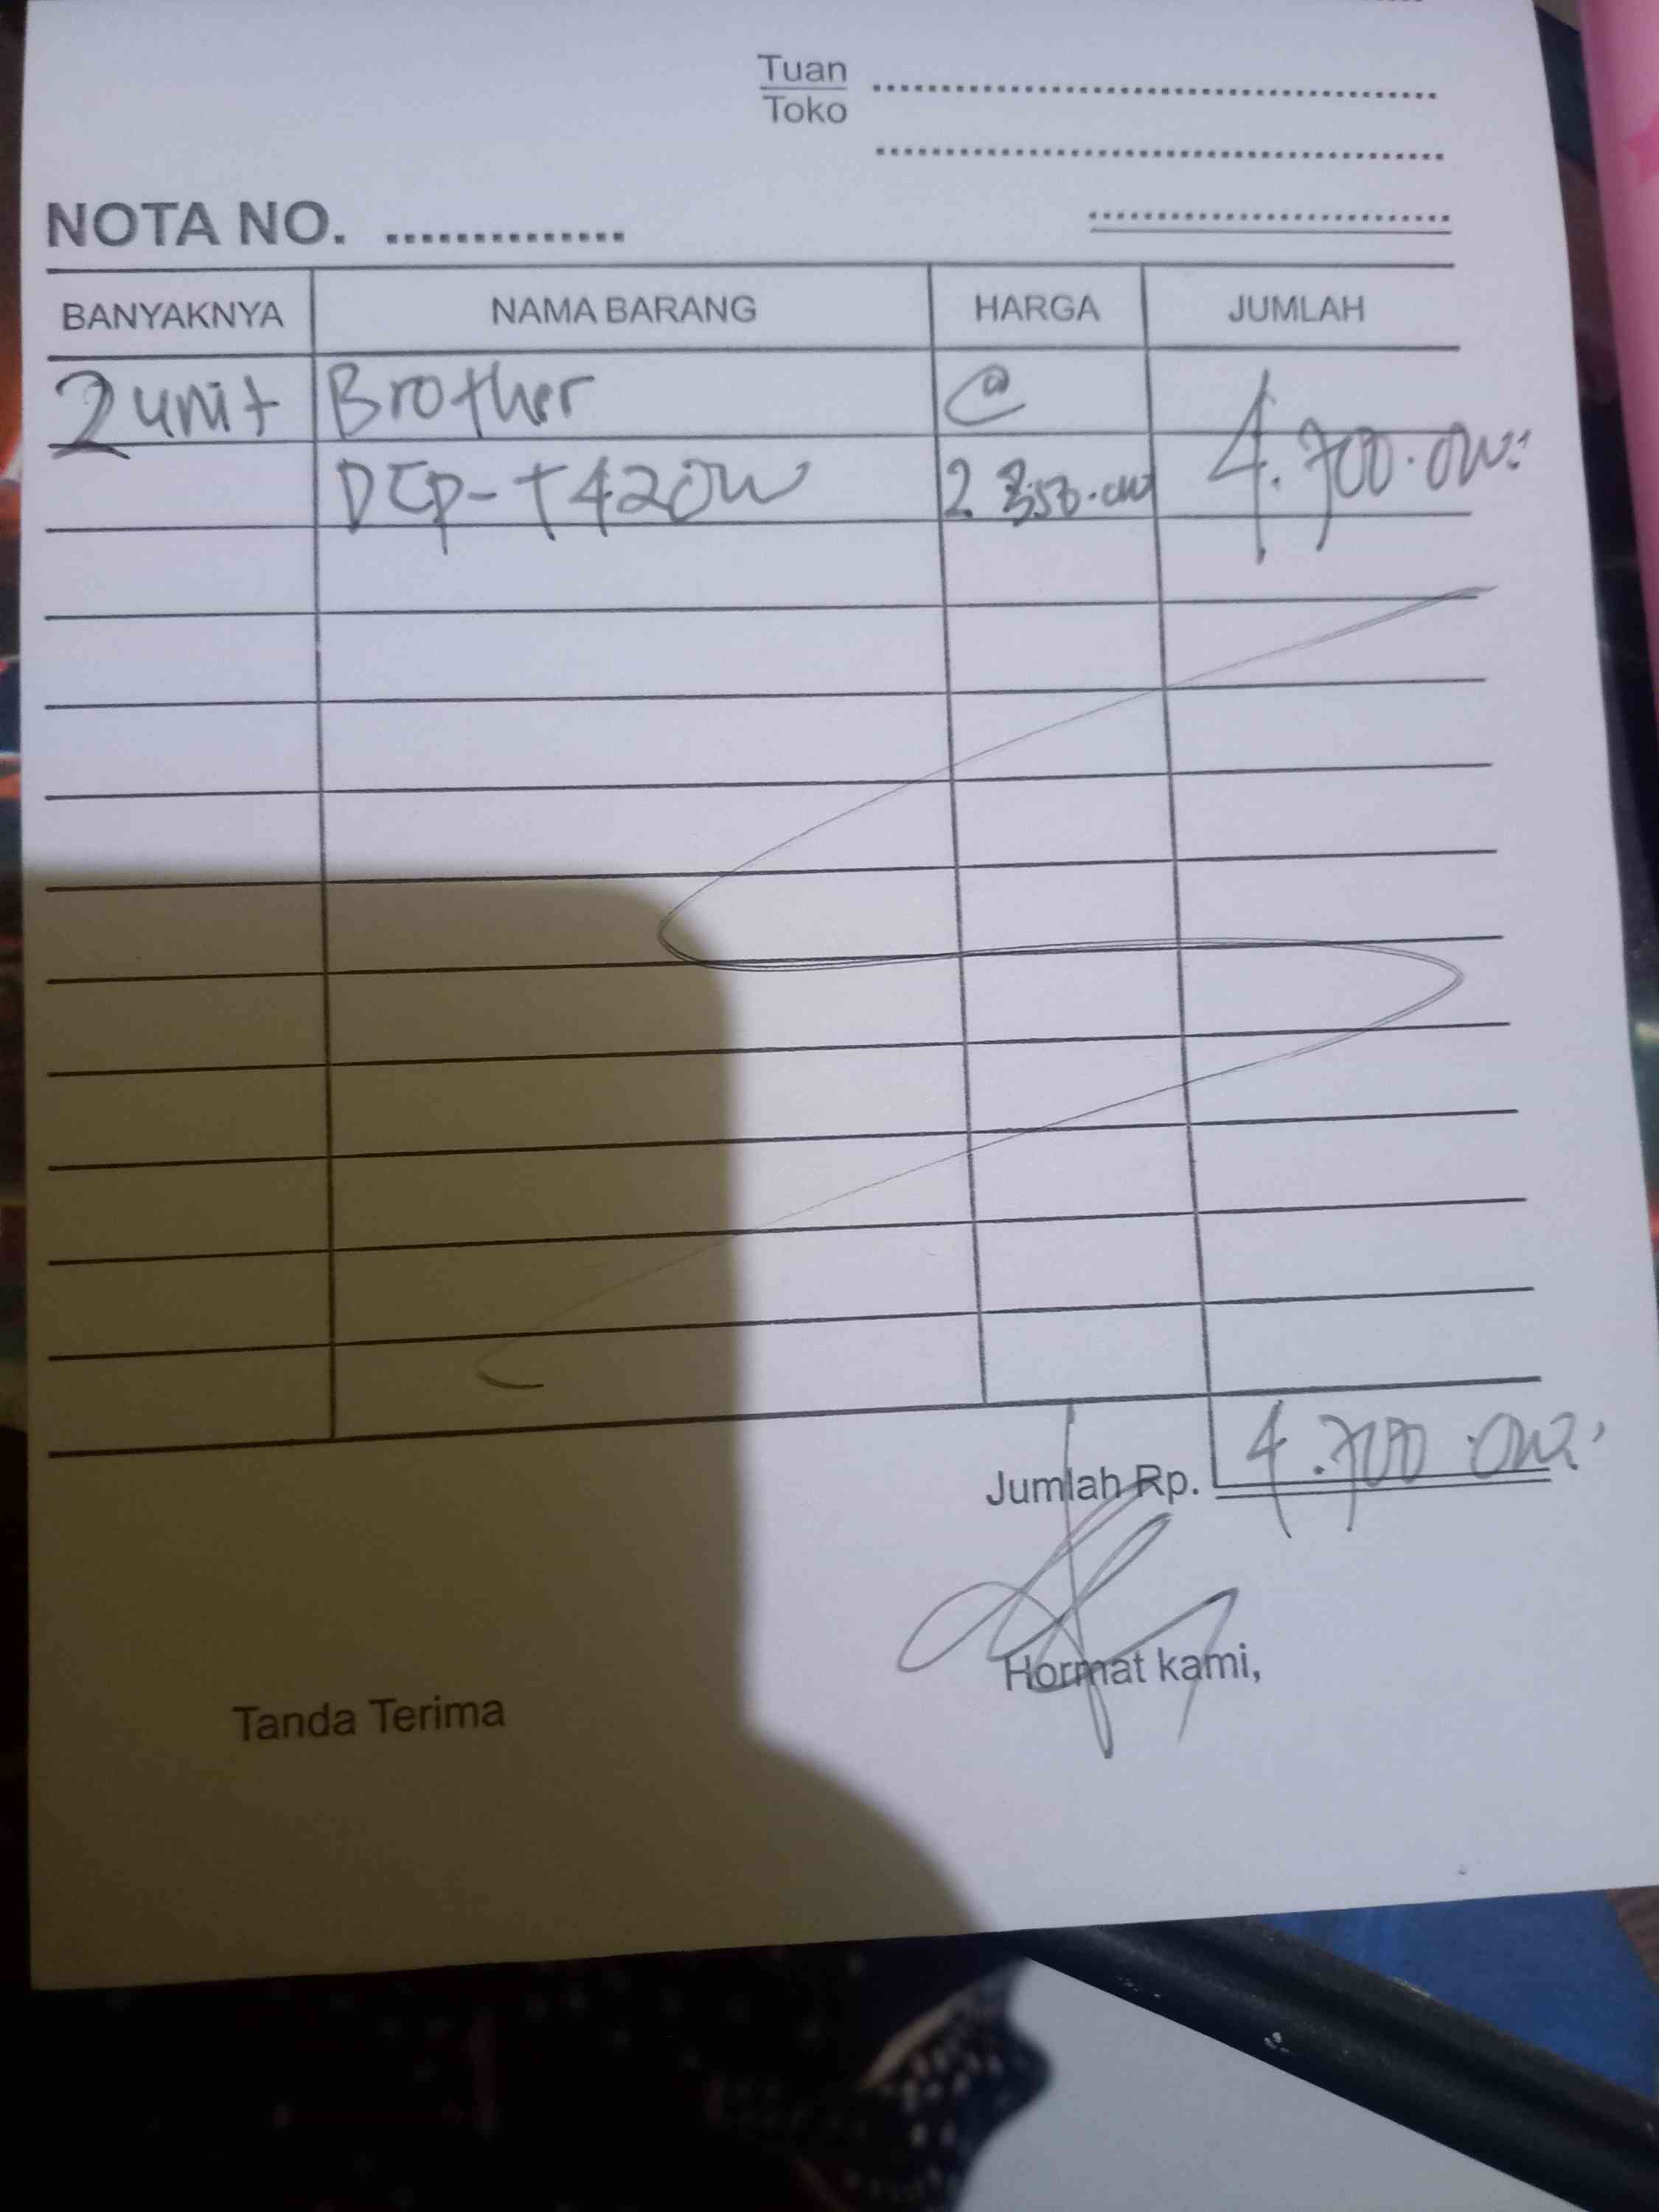 Tuan
Toko
NOTA NO.
BANYAKNYA NAMA BARANG HARGA JUMLAH
2 unit Brother @
DCP-T420W 2.350.000 4.700.000
Jumlah Rp. 4.700.000
Hormat kami,
Tanda Terima